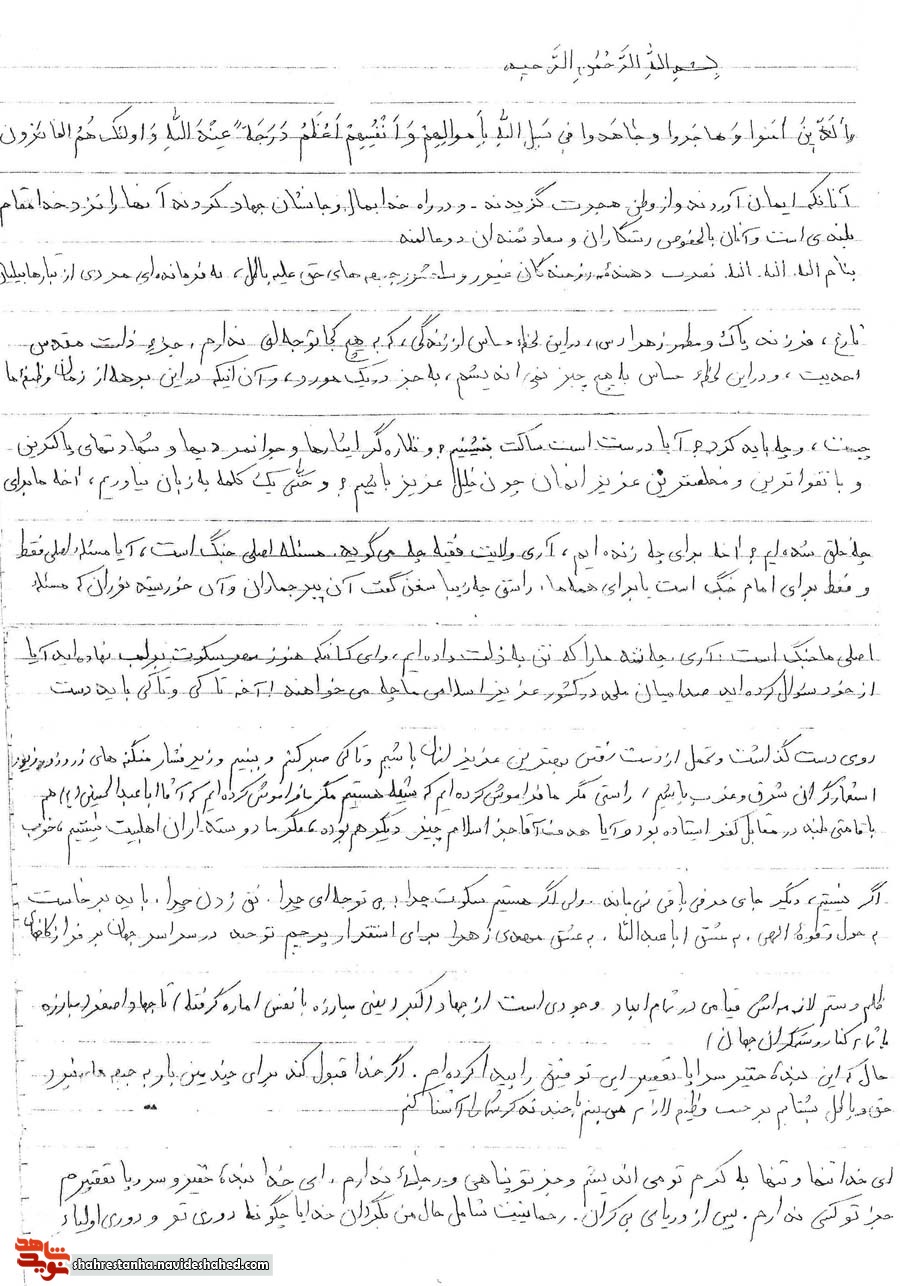 بسم الله الرَّحْمنِ الرَّحیم
الَّذینَ آمَنوا وَ هاجَروا و جاهَدوا فی سَبیلِ اللهِ بِأَموالِهِمْ وَ أَنْفُسِهِمْ أَعْظَمُ دَرَجَةً عِنْدَ اللهِ وَ اولئکَ هُمُ الفائزون
آنانکه ایمان آوردند و از وطن هجرت گزیدند - و در راه خدا بمال و جانشان جهاد کردند آنها را نزد خدا مقام
بلندی است و آنان بالخصوص رستگاران و سعادتمندان دو عالمند
بنام الله. الله. الله. نصرت دهندهٔ رزمندگان غیور و سلحشور جبهه های حق علیه باطل، به فرماندهی مردی از تبار هابیلیان
تاریخ، فرزند پاک و مطهر زهرا (س)، در این لحظهٔ حساس از زندگی، که به هیچ کجا توجه ای ندارم، جز به ذات مقدس
احدیت، و در این لحظهٔ حساس به هیچ چیز نمی اندیشم، به جز در یک مورد، و آن اینکه در این برهه از زمان وظیفهٔ ما
چیست، و چه باید کرد؟ آیا درست است ساکت بنشینیم؟ و نظاره گر ایثارها و جوانمردیها و شهادتهای پاکترین
و با تقواترین و مخلصترین عزیز انمان چون خلیل عزیز باشیم؟ و حتّی یک کلمه به زبان نیاوریم، آخه ما برای
چه خلق شده ایم؟ آخه برای چه زنده ایم، آری ولایت فقیه چه می گوید. مسئله اصلی جنگ است، آیا مسئله اصلی فقط
و فقط برای امام جنگ است یا برای همه ما. راستی چه زیبا سخن گفت آن پیر جماران و آن خورشید نوران که مسئلهٔ
اصلی ما جنگ است. آری. چه شده ما را که تن به ذلت داده ایم، وای کسانیکه هنوز مهر سکوت بر لب نهاده اید آیا
از خود سؤال کرده اید صدامیان ملحد در کشور عزیز اسلامی ما چه می خواهند! آخه تا کی و تا کی باید دست
روی دست گذاشت و تحمل از دست رفتن بهترین عزیزانمان باشیم و تا کی صبر کنم و ببینم و زیر فشار منگنه های زر و زور و تزویر
استعمارگران شرق و غرب باشیم، راستی مگر ما فراموش کرده ایم که شیعه هستیم مگر ما فراموش کرده ایم که آقا ابا عبدالحسین (ع) هم
با قامتی بلند در مقابل کفر ایستاده بود و آیا هدف آقا جز اسلام چیز دیگر هم بوده، مگر ما دوستداران اهلبیت نیستیم، خوب
اگر نیستیم، دیگر جای حرفی باقی نمی ماند. ولی اگر هستیم سکوت چرا. بی توجه ای چرا. نق زدن چرا. باید برخاست
به حول و قوهٔ الهی. به عشق اباعبدالله. به عشق مهدی زهرا برای استقرار پرچم توحید در سراسر جهان بر فراز کاخهای
ظلم و ستم لازمه اش قیامی در تمام ابعاد وجودی است از جهاد اکبر (یعنی مبارزه با نفس اماره گرفته) تا جهاد اصغر (مبارزه
با تمام کفار و ستمگران جهان)
حال که این بندهٔ حقیر سراپا تقصیر این توفیق را پیدا کرده ام. اگر خدا قبول کند برای چندمین بار به جبهه های نبرد
حق و باطل بشتابم بر حسب وظیفه لازم می بینم با چند تذکر شما را آشنا کنم
ای خدا تنها و تنها به کرم تو می اندیشم و جز تو پناهی و ندارم. ای خدا بندهٔ حقیر و سراپا تقصیرم
جز تو کسی ندارم. پس از دریای بی کران. رحمانیتت شامل حال من بگردان خدایا چگونه دوری تو و دوری اولیاء
شاهد
نوید
shahrestanha.navideshahed.com